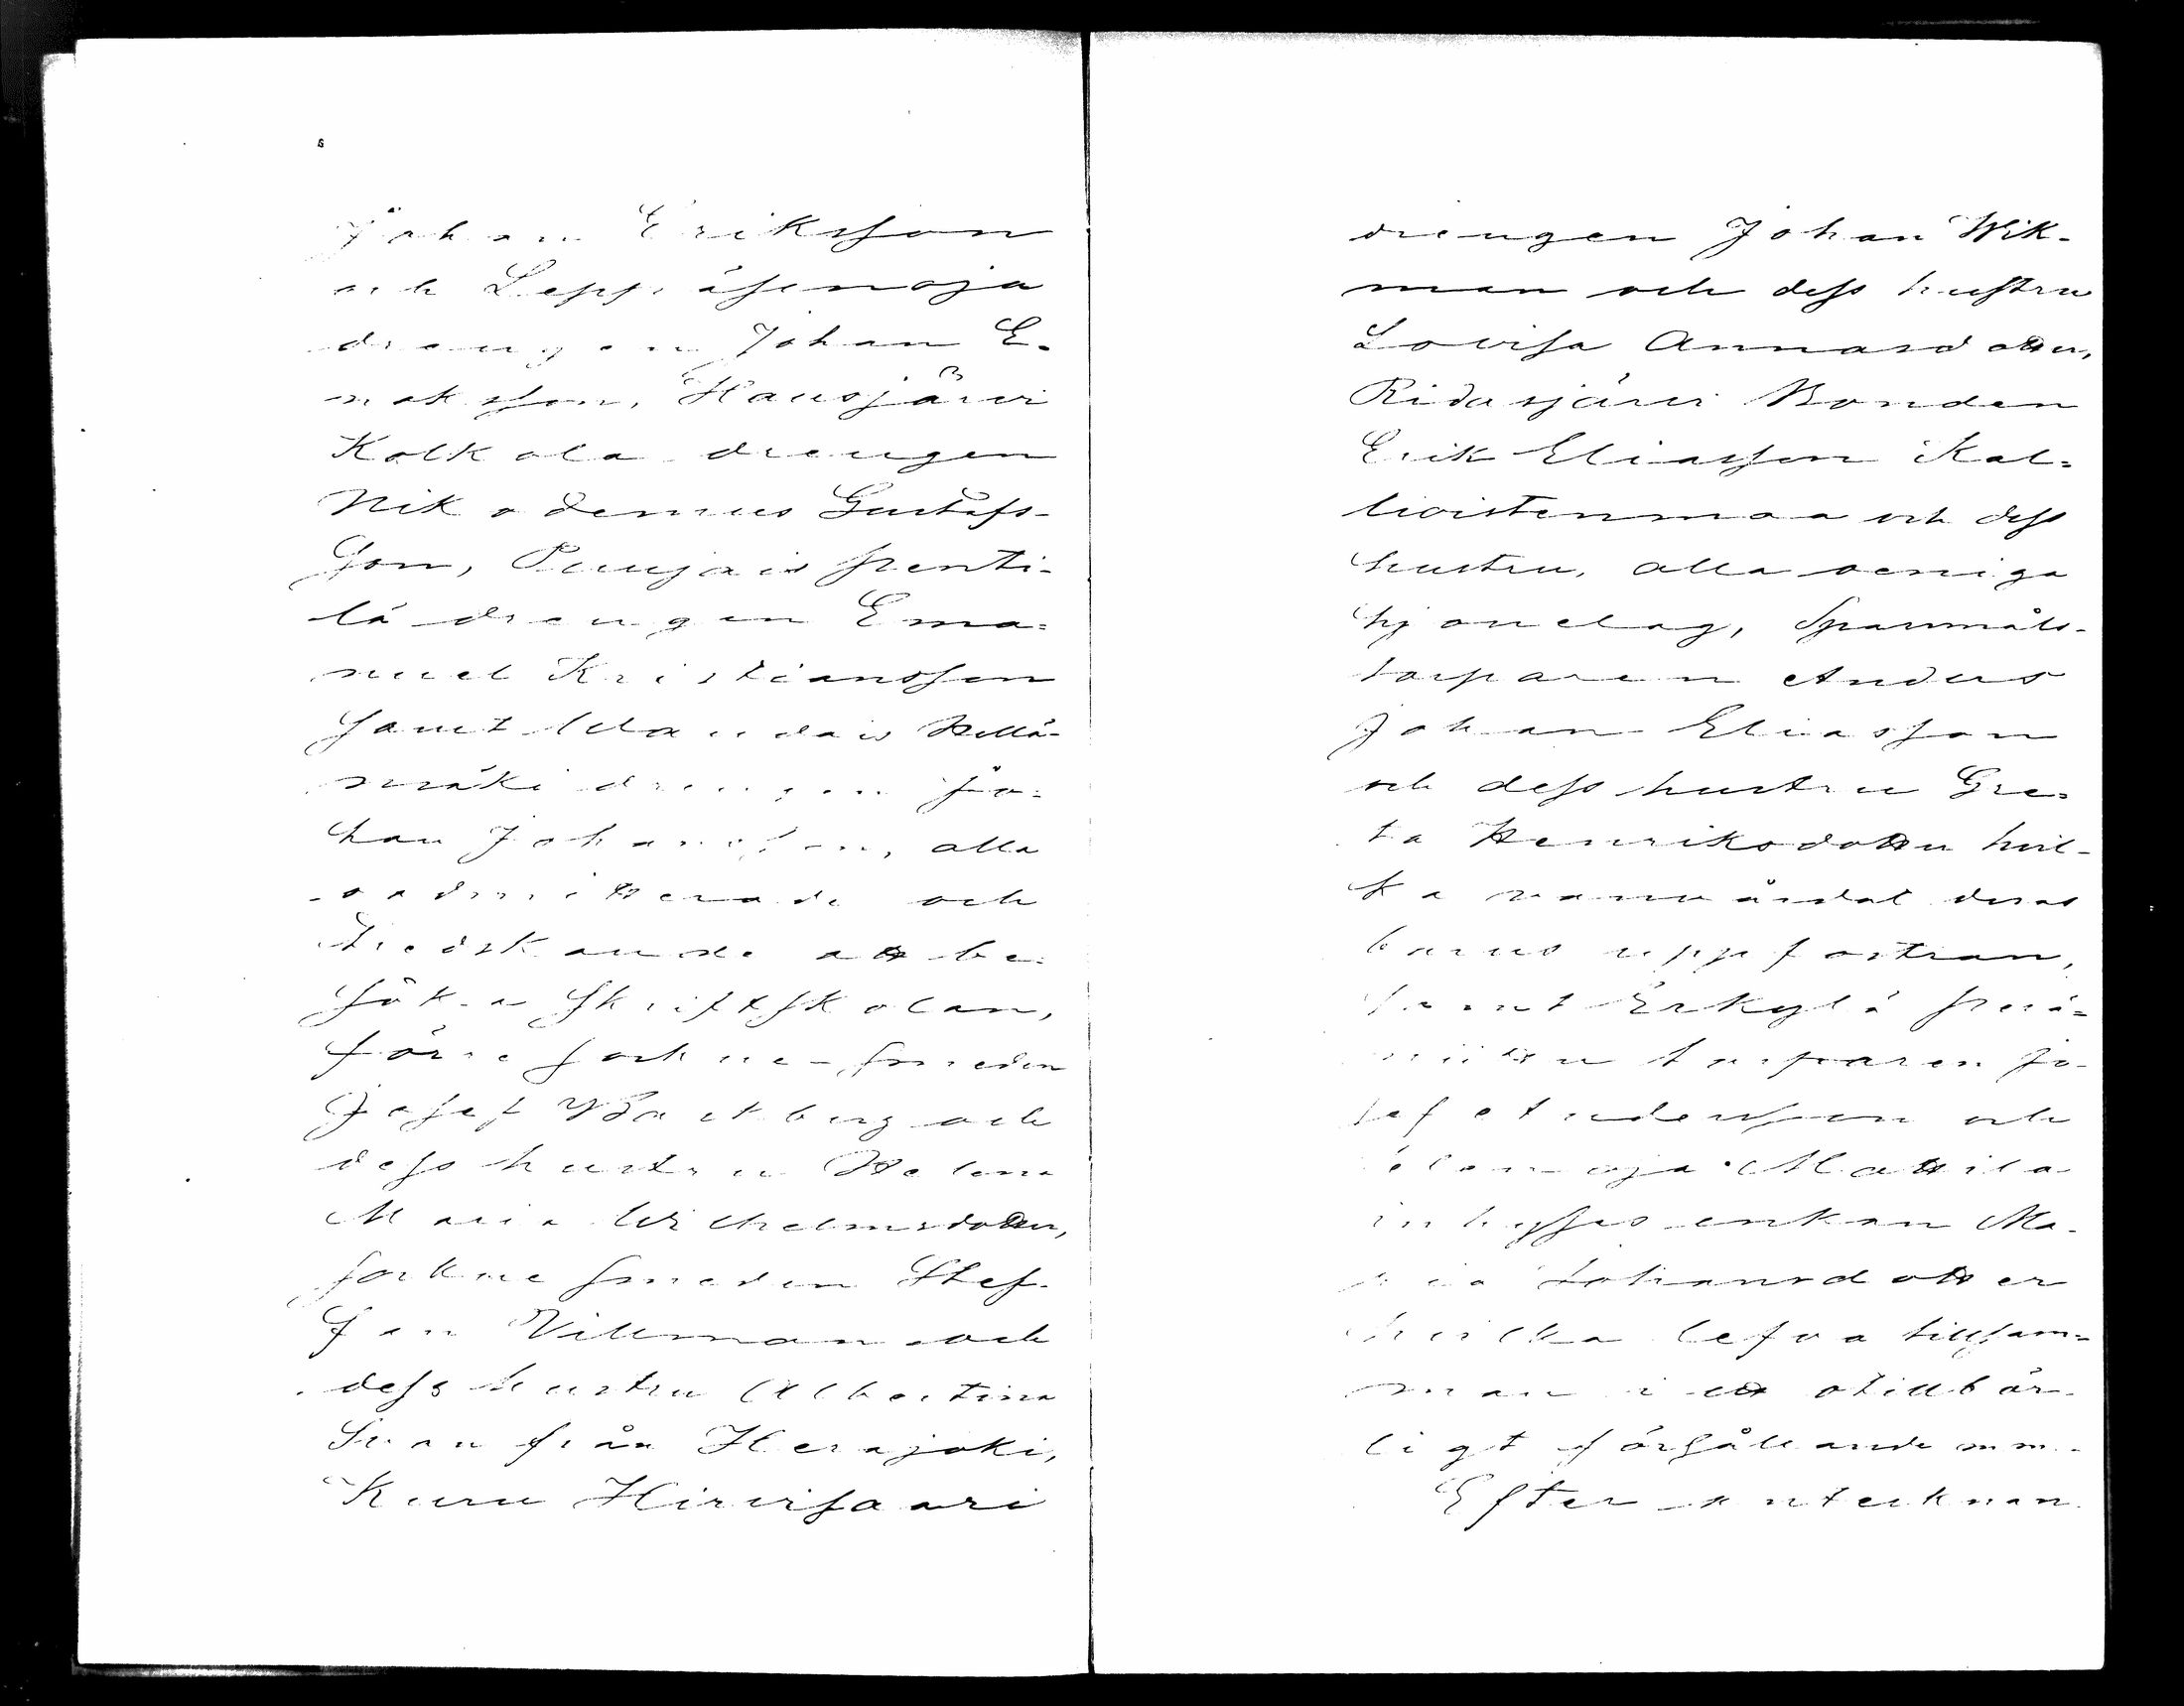 Johan Eriksson
och Leppäsenoja
drengen Johan E-
noksson, Hausjärvi
Kolkola drengen
Nikodemus Gustafs-
son, Puujais Penti-
lä drengen Ema=
nuel Kristiansson
samt Idandais Kellä-
mäki drengen Jo=
han Johansson, alla
oadmitterade och
tredskande att be=
söka Skriftskolan,
förre sockne-smeden
Josef Backberg och
dess hustru Helena
Maria Wilhelmsdotter,
sockne smeden Stef-
fan Vikman och
dess hustru Albertina
Svan från Herajoki,
Kuru Hirvisaari
drengen Johan Wik-
man och dess hustru
Lovisa Annasdotter,
Ridasjärvi Bonden
Erik Eliasson Kal=
lioistenmaa och dess
hustru, alla oeniga
hjonelag, Spanmåls-
torparen Anders
Johan Eliasson
och dess hustru Gre=
ta Henriksdotter hvil-
ka vanvårdat deras
barns uppfostran,
samt Erkylä
torparen Jo-
sef Andersson och
Mattila
inhysses enkan Ma-
ria Johansdotter
hvilka lefva tillsam=
man i ett otillbör-
ligt förhållande m m.
Efter anteknan